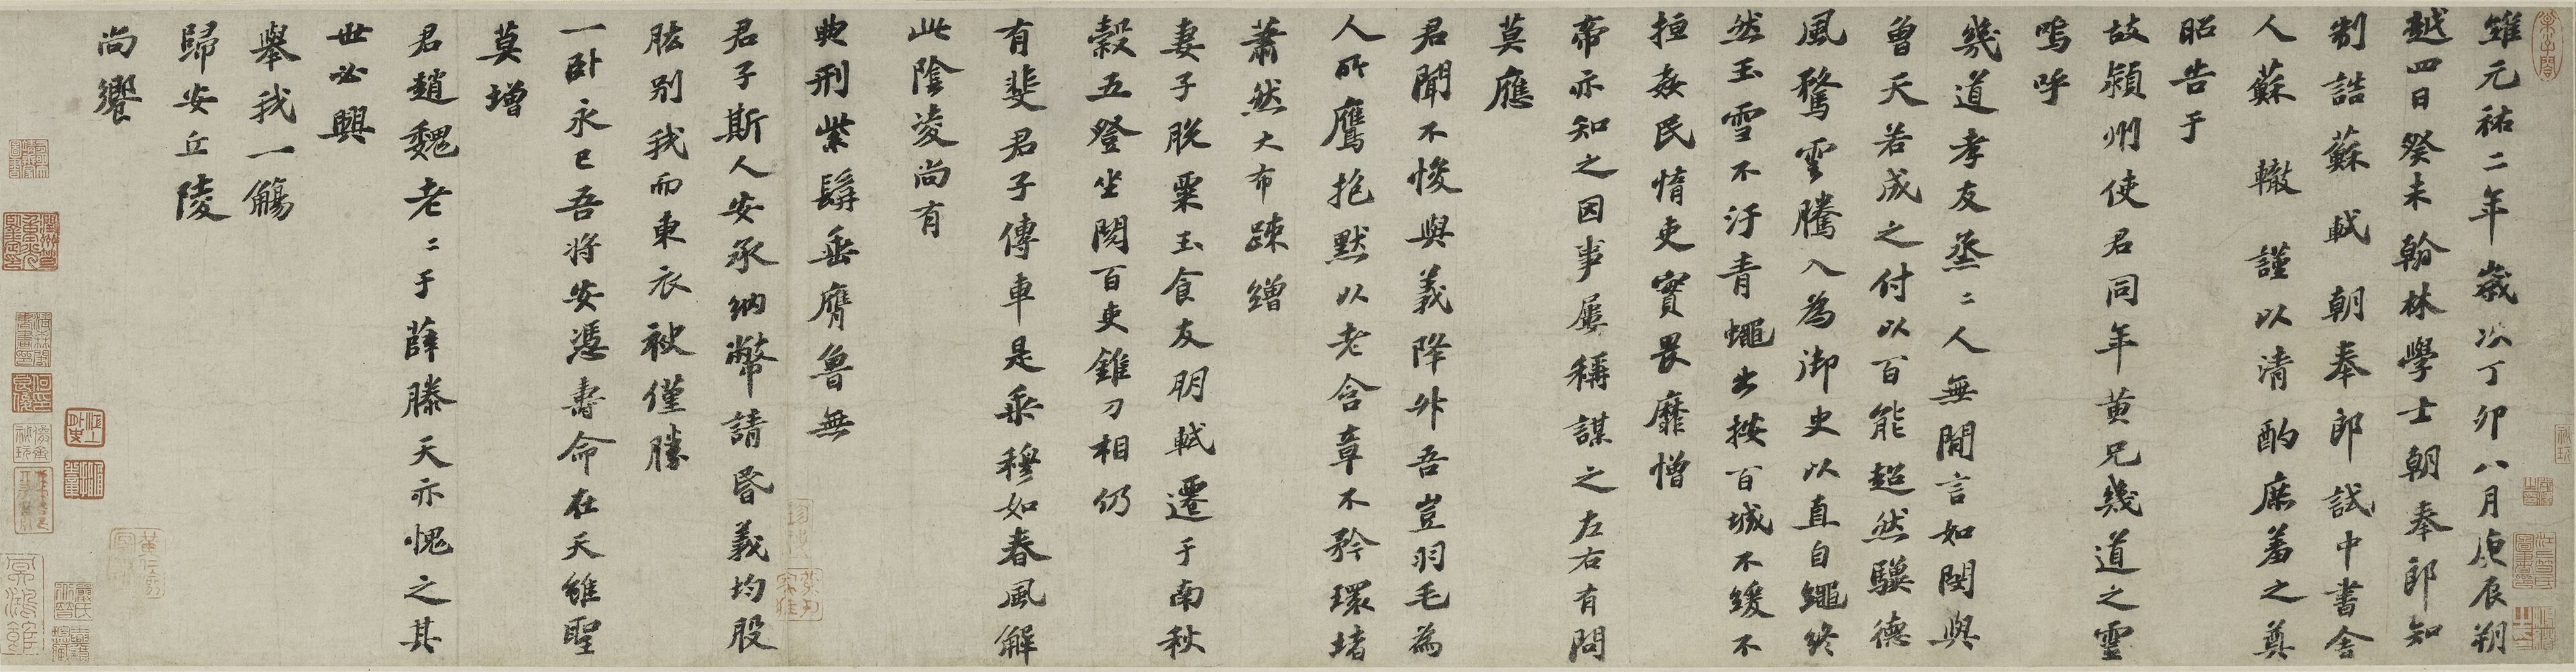 維元祐二年歲次丁卯八月庚辰朔
越四日癸未翰林學士朝奉郎知
制誥蘇軾朝奉郎試中書舍
人蘇轍謹以清酌庶羞之奠
昭告于
故潁州使君同年黃兄幾道之靈
嗚呼
幾道孝友烝〻人無閒言如閔與
曾天若成之付以百能超然驥德
風騖雲騰入為御史以直自繩終
然玉雪不汙青蠅出按百城不緩不
搄姦民惰吏實畏靡憎
帝亦知之因事屢稱謀之左右有問
莫應
君聞不悛與義降升吾豈羽毛為
人所鷹抱默以老含章不矜環堵
蕭然大布疎繒
妻子脫粟玉食友朋軾遷于南秋
穀五登坐閱百吏錐刀相仍
有斐君子傳車是乘穆如春風解
此陰凌尚有
典刑紫髯垂膺魯無
君子斯人安承納幣請昬義均股
肱別我而東衣袂僅勝
一臥永已吾將安憑壽命在天雖聖
莫增
君趙魏老〻于薛滕天亦愧之其
世必興
舉我一觴
歸安丘陵
尚饗